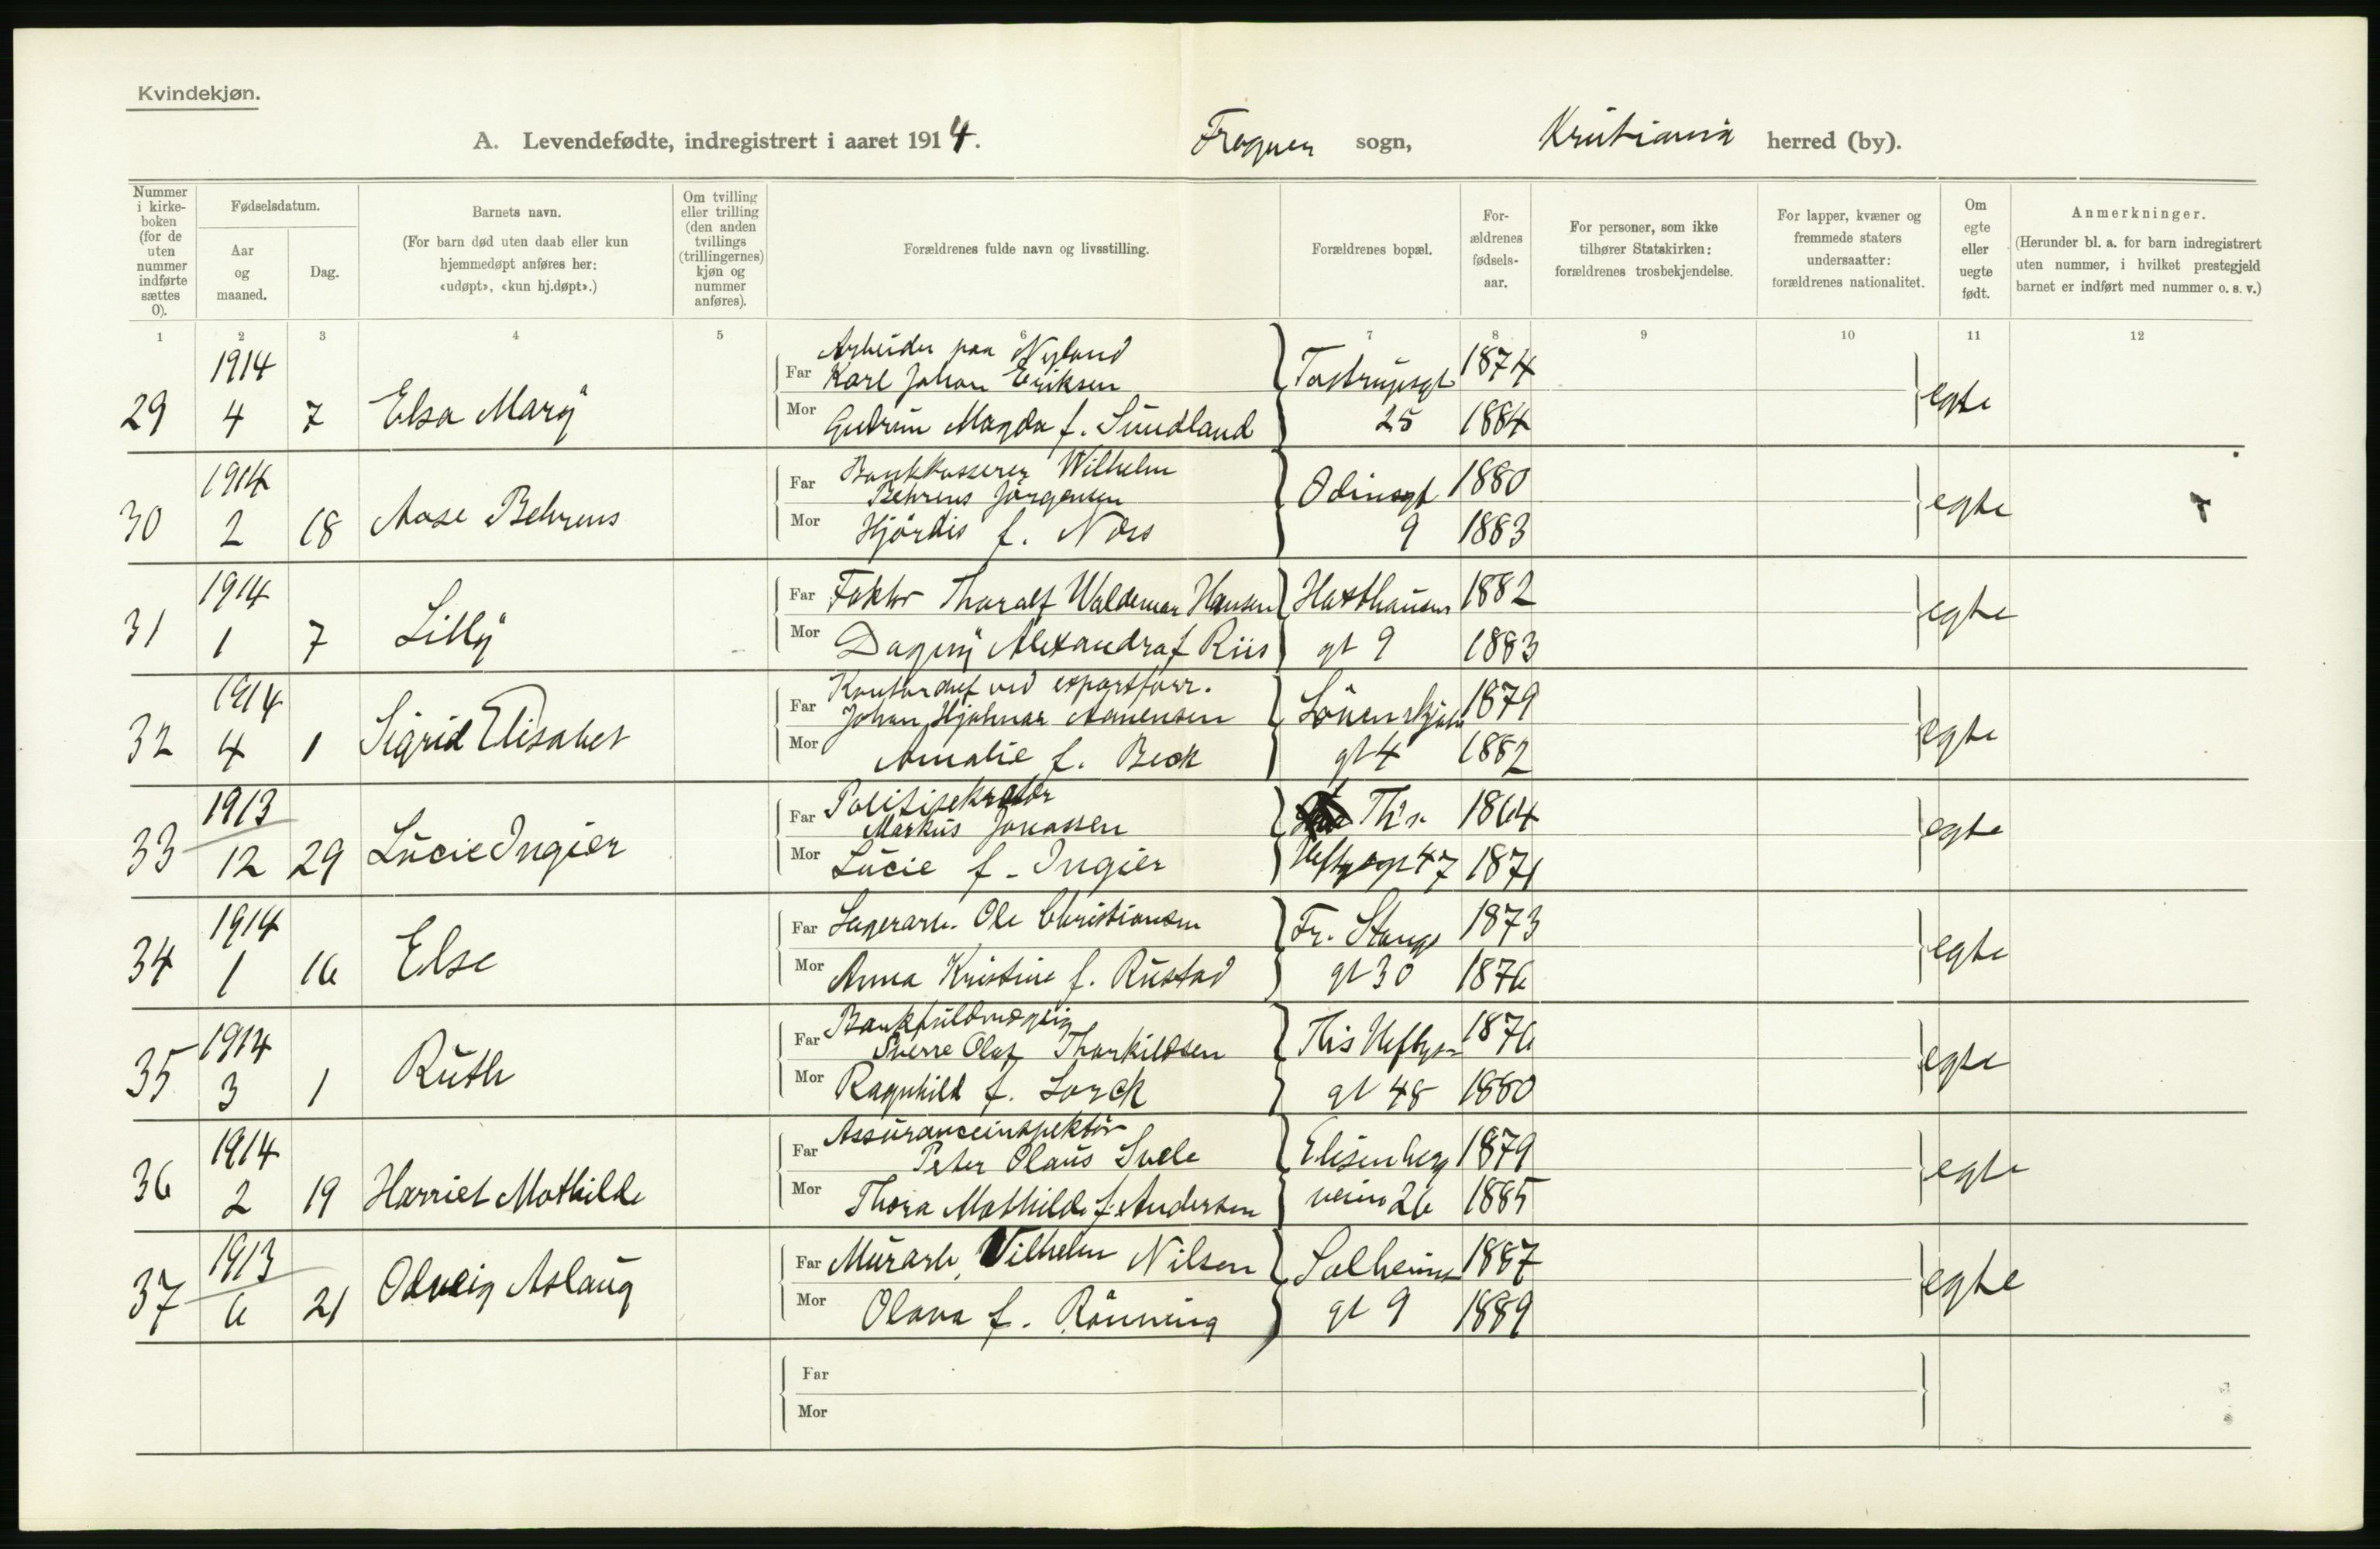 Kvindekjøn.
A. Levendefødte, indregistrert i aaret 1914.
Frogner sogn, Kristiania herred (by).
Nummer i kirke-boken (for de uten nummer indførte sættes 0).
Fødselsdatum.
Aar og maaned.
Dag.
Barnets navn.
(For barn død uten daab eller kun hjemmedøpt anføres her: «udøpt», «kun hj.døpt».)
Om tvilling eller trilling (den anden tvillings (trillingernes) kjøn og nummer anføres).
Forældrenes fulde navn og livsstilling.
Forældrenes bopæl.
For-ældrenes fødsels-aar.
For personer, som ikke tilhører Statskirken: forældrenes trosbekjendelse.
For lapper, kvæner og fremmede staters undersaatter: forældrenes nationalitet.
Om egte eller uegte født.
Anmerkninger.
(Herunder bl. a. for barn indregistrert uten nummer, i hvilket prestegjeld barnet er indført med nummer o. s. v.)
1 2 3 4 5 6 7 8 9 10 11 12
29 1914 4 7 Elsa Mary
Arbeider paa Nyland
Far Karl Johan Eriksen Tostrupsgt 1874
Mor Gudrun Magda f. Sundland 25 1884
egte
30 1914 2 18 Aase Behrens
Far Bankkasserer Wilhelm
Behrens Jörgensen Odinsgt 1880
Mor Hjördis f. Næss 9 1883
egte
31 1914 1 7 Lilly
Far Faktor Tharalf Waldemar Hansen Haxthausens 1882
Mor Dagny Alexandra f Riis gt 9 1883
egte
32 1914 4 1 Sigrid Elisabet
Kontorchef ved exportforr.
Far Johan Hjalmar Amensen Lövenskjolds 1879
Mor Amalie f. Beck gt 4 1882
egte
33 1913 12 29 Lucie Ingier
Far Politisekretær
Markus Jonassen Th's 1864
Mor Lucie f. Ingier Heftyesgt 47 1871
egte
34 1914 1 16 Else
Far Lagerarb. Ole Christiansen Fr. Stangs 1873
Mor Anna Kristine f. Rustad gt 30 1876
egte
35 1914 3 1 Ruth
Far Bankfuldmægtig
Sverre Olaf Tharkildsen Th's Heftyes 1876
Mor Ragnhild f. Lorck gt 48 1880
egte
36 1914 2 19 Harriet Mathilde
Assuranceinspektör
Far Peter Olaus Svele Elisenberg 1879
Mor Thora Mathilde f. Andersen veien 26 1885
egte
37 1913 6 21 Odveig Aslaug
Far Murarb. Vilhelm Nilsen Solheims 1887
Mor Olava f. Rönning gt 9 1889
egte
Far
Mor